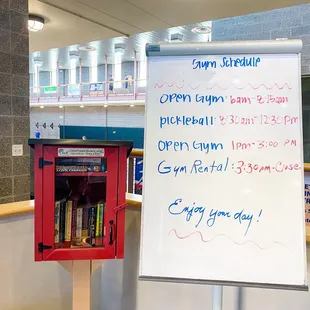 Gym Schedule
Open Gym: 6am-8:15am
pickleball: 8:30am-12:30pm
Open Gym: 1pm-3:00pm
Gym Rental: 3:30pm-Close
Enjoy your day!